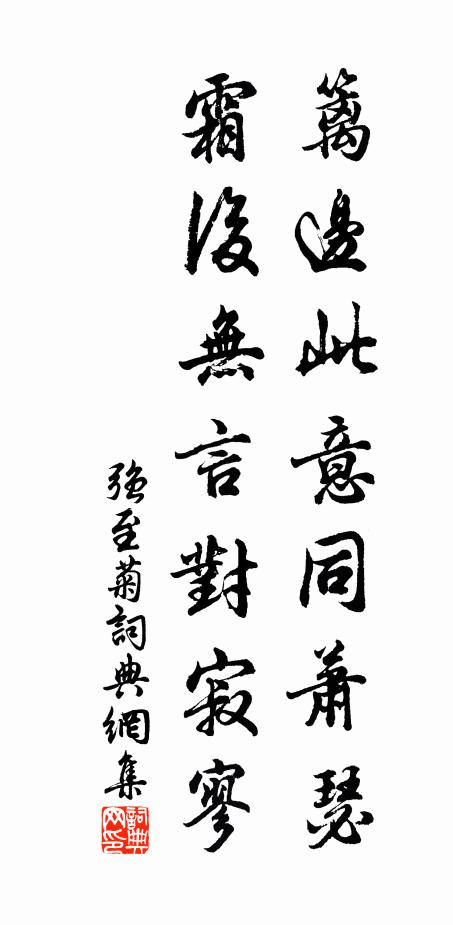 籬邊此意同蕭瑟
霜後無言對寂寥
強至菊詞典網集
詞典网印